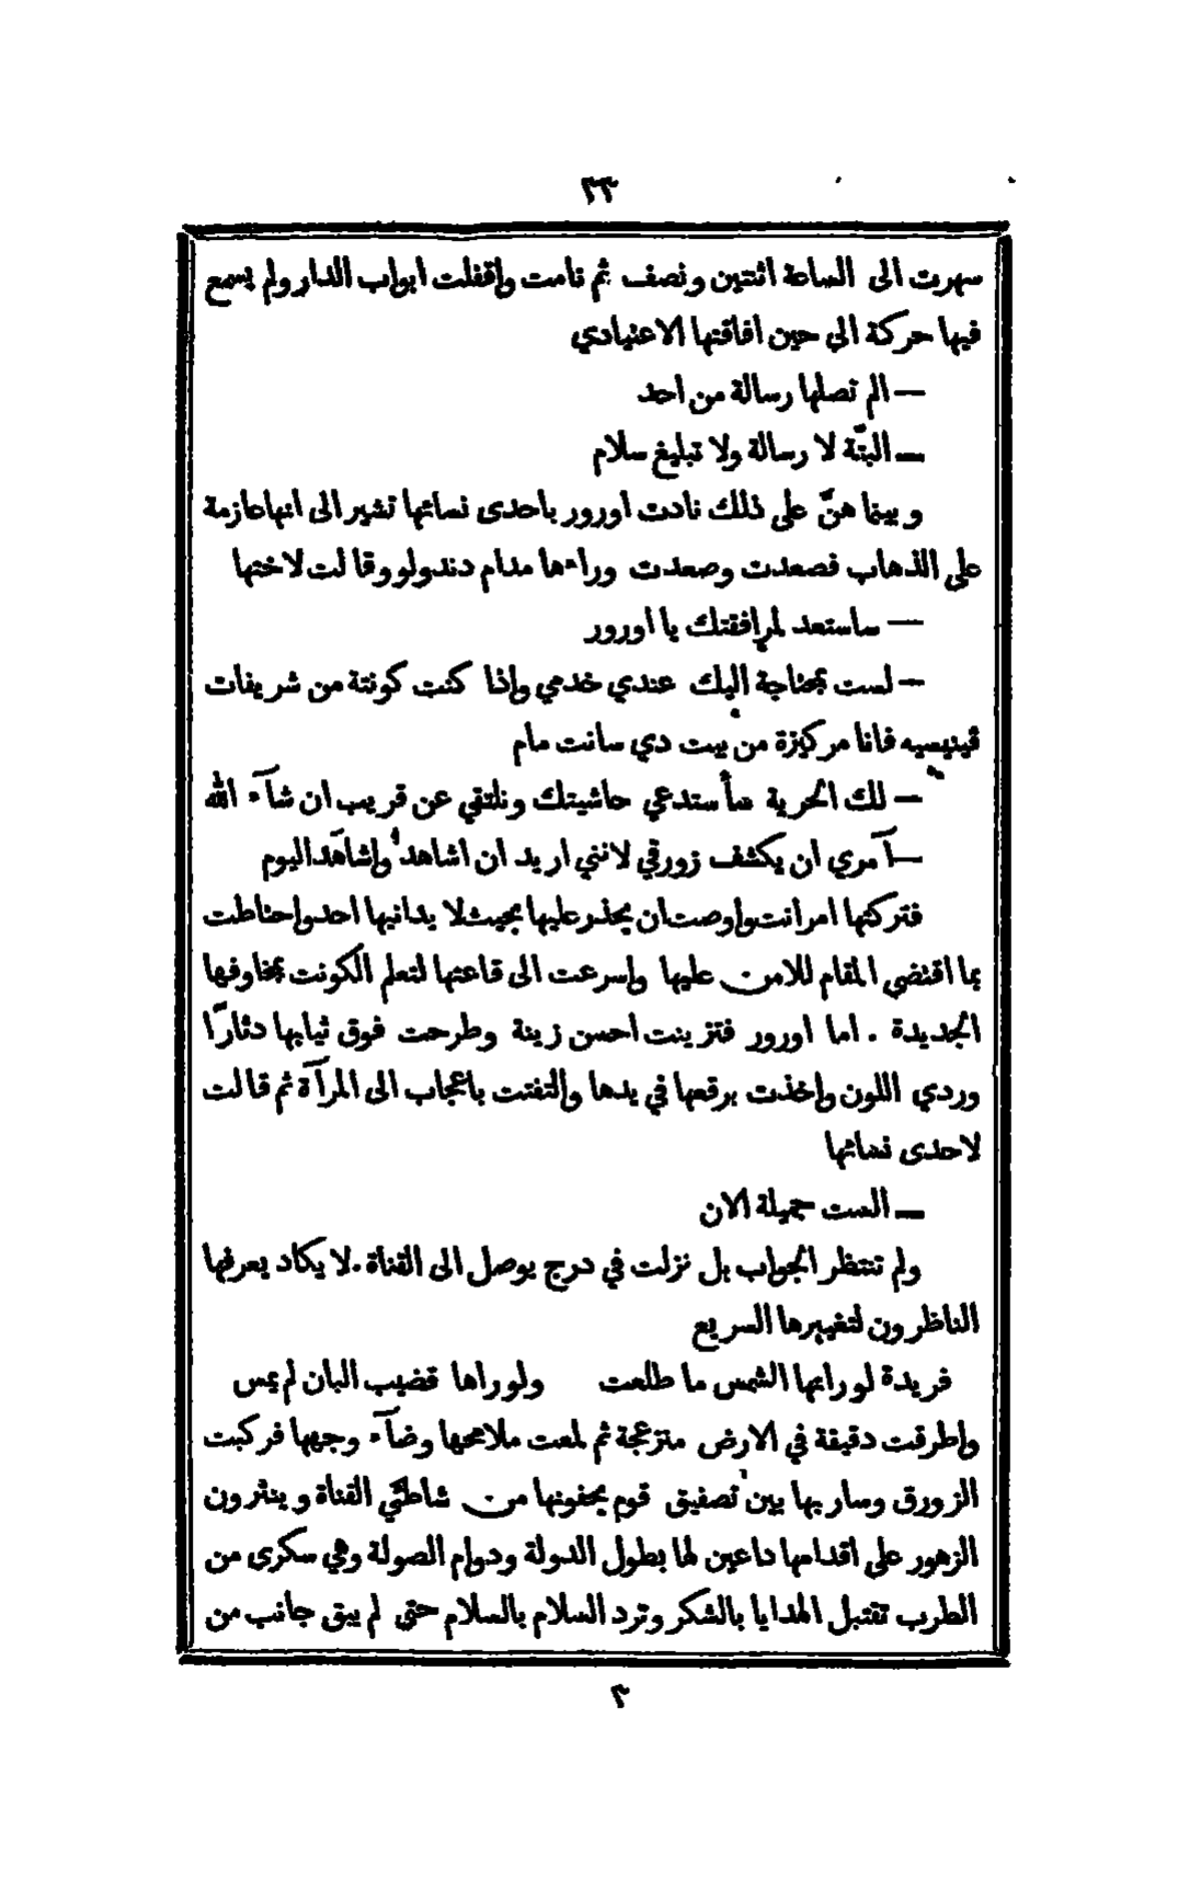 ٣٣
سهرت الى الساعة اثنتين ونصف ثم نامت واقفلت ابواب الدار ولم يسمع
فيها حركة الى حين افاقتها الاعنيادي
— الم تصلها رسالة من احد
— البتّة لا رسالة ولا تبليغ سلام
وبينما هنّ على ذلك نادت اورور باحدى نسائها تشير الى انها عازمة
على الذهاب فصعدت وصعدت وراءها مدام دندولو وقالت لاختها
— ساستعد لمرافقتك يا اورور
— لست بمحناجة اليك عندي خدمي واذا كنت كونتة من شريفات
ڤينيسيه فانا مركيزة من بيت دي سانت مام
— لك الحرية سأستدعي حاشيتك ونلتقي عن قريب ان شآء الله
— آمري ان يكشف زورقي لانني اريد ان اشاهد وإشاهَد اليوم
فتركتها امرانت واوصت ان يحذر عليها بحيث لا يدانيها احد واحناطت
بما اقنضى المقام للامن عليها واسرعت الى قاعتها لتعلم الكونت بمخاوفها
الجديدة . اما اورور فتزينت احسن زينة وطرحت فوق ثيابها دثارًا
وردي اللون واخذت برقعها في يدها والتفتت باعجاب الى المرآة ثم قالت
لاحدى نسائها
— الست جميلة الان
ولم تنتظر الجواب بل نزلت في درج يوصل الى القناة . لا يكاد يعرفها
الناظرون لتغييرها السريع
فريدة لو راتها الشمس ما طلعت ولو راها قضيب البان لم يمس
واطرقت دقيقة في الارض منزعجة ثم لمعت ملامحها وضآء وجهها فركبت
الزورق وسار بها بين تصفيق قوم يحفونها من شاطئي القناة وينثرون
الزهور على اقدامها داعين لها بطول الدولة ودوام الصولة وهي سكرى من
الطرب تقتبل الهدايا بالشكر وترد السلام بالسلام حتى لم يبق جانب من
٣